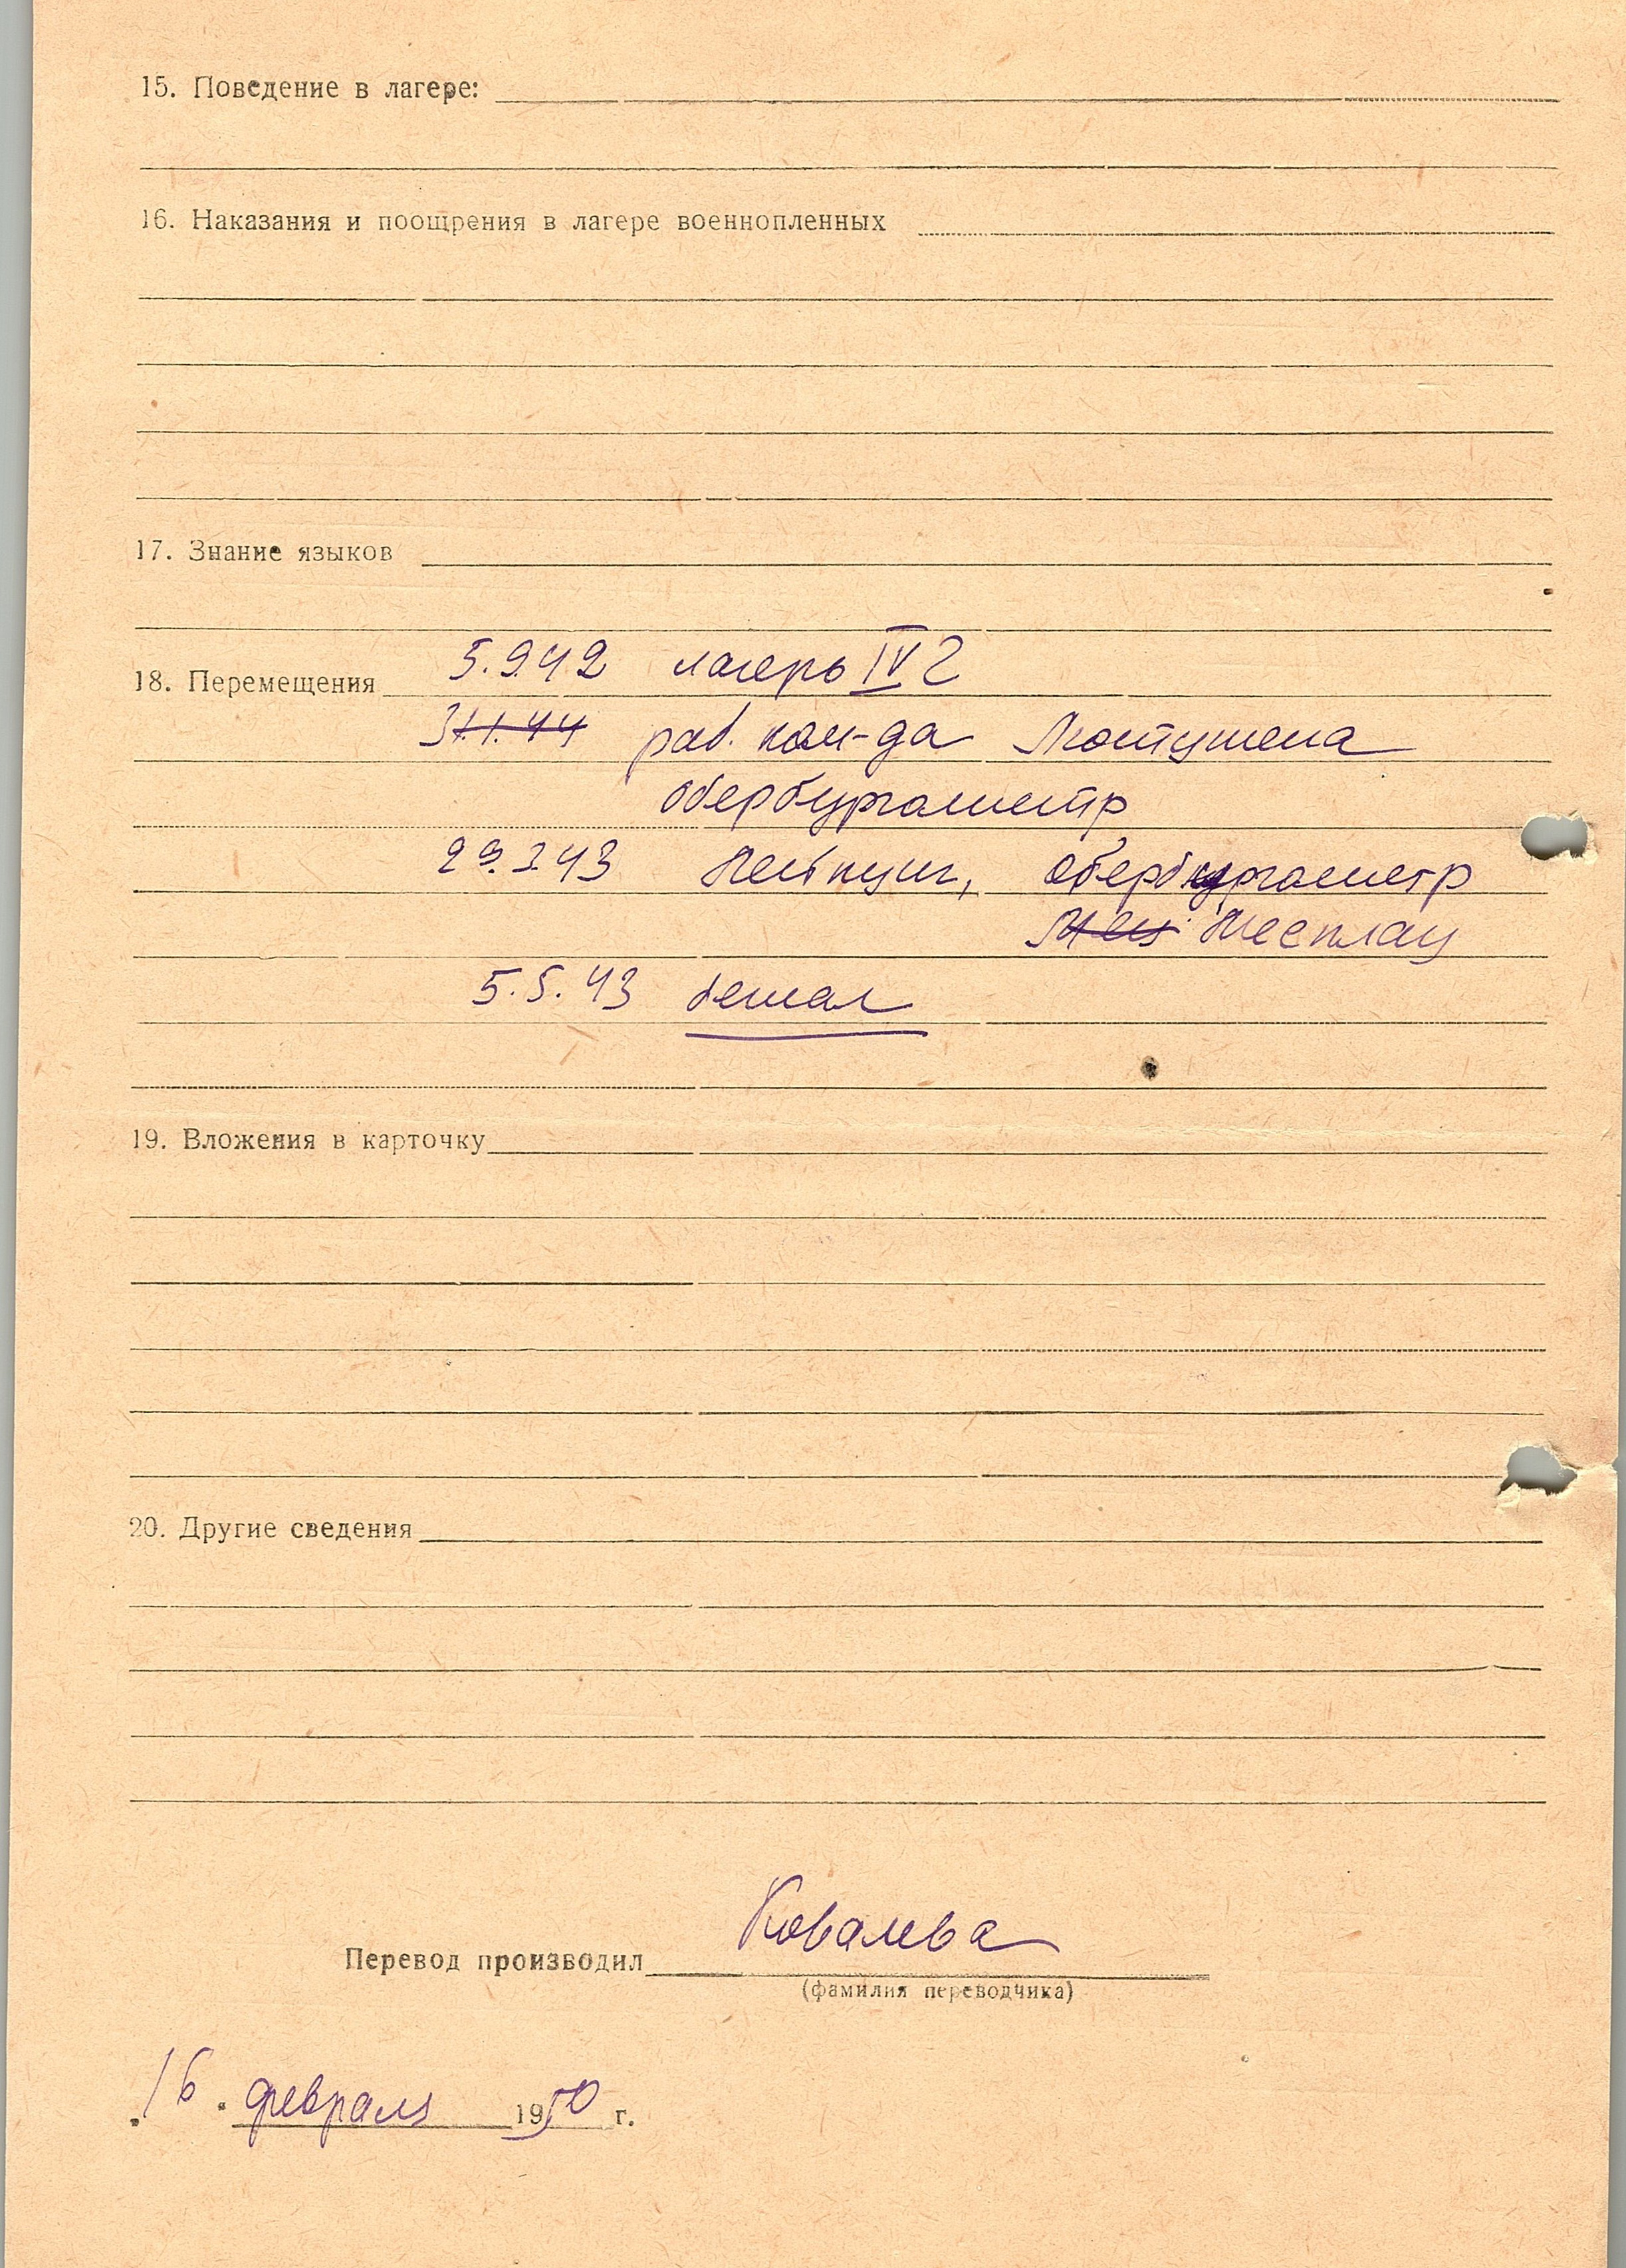 15. Поведение в лагере:
16. Наказания и поощрения в лагере военнопленных
17. Знание языков
18. Перемещения 5.9.42 лагерь IV C
31.1.44 раб. ком-да
обербургомистр
29.3.43 Лейпциг, обербургомистр
5.5.43 бежал
19. Вложения в карточку
20. Другие сведения
Перевод производил Ковалева
(фамилия переводчика)
"16" февраля 1950 г.